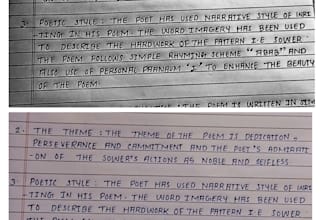 3. POETIC STYLE : THE POET HAS USED NARRATIVE STYLE OF WRI
-TING IN HIS POEM. THE WORD IMAGERY HAS BEEN USED
TO DESCRIBE THE HARDWORK OF THE PATTERN I.E SOWER
THE POEM FOLLOWS SIMPLE RHYMING SCHEME "ABAB" AND
ALSO USE OF PERSONAL PRANAUM "I" TO ENHANCE THE BEAUTY
OF THE POEM.
THE POEM IS WRITTEN IN
2. THE THEME : THE THEME OF THE POEM IS DEDICATION,
PERSEVERANCE AND CAMMITMENT AND THE POET'S ADMIRATI
-ON OF THE SOWER'S ACTIONS AS NOBLE AND SELFLESS.
3 POETIC STYLE : THE POET HAS USED NARRATIVE STYLE OF WRI
-TING IN HIS POEM. THE WORD IMAGERY HAS BEEN USED
TO DESCRIBE THE HARDWORK OF THE PATTERN I.E SOWER